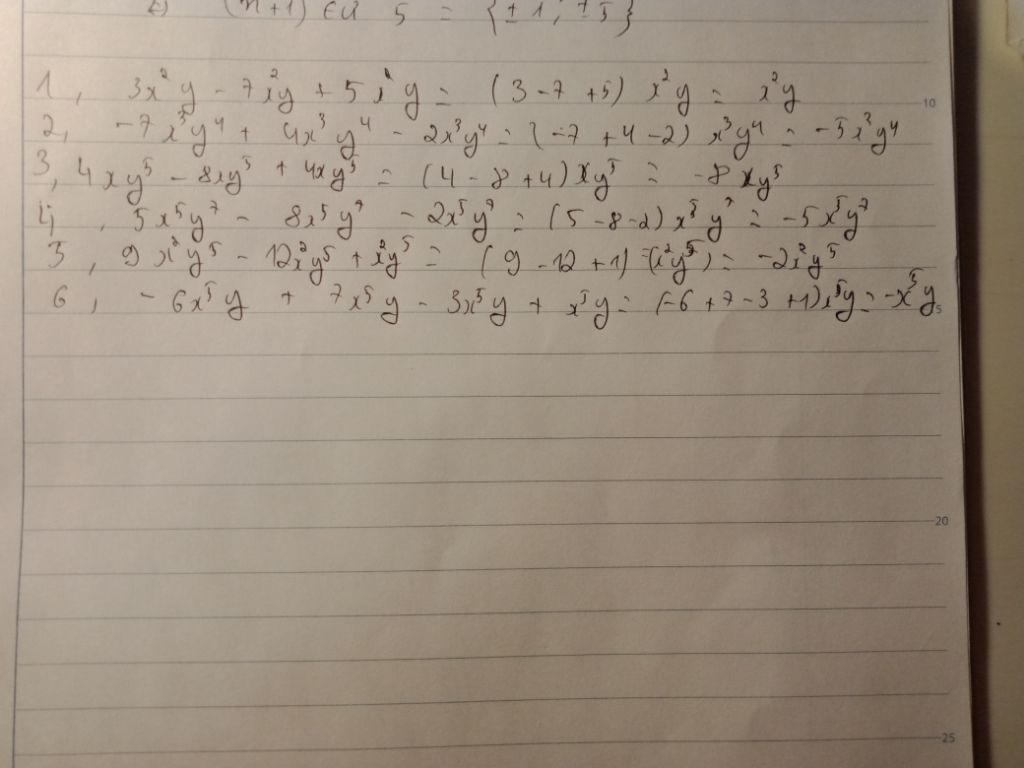 (n+1) ∈Ư 5 = {±1; ±5}
1, 3x²y - 7x²y + 5x²y = (3-7+5) x²y = x²y
10
2, -7x³y⁴ + 4x³y⁴ - 2x³y⁴ = (-7+4-2) x³y⁴ = -5x³y⁴
3, 4xy⁵ - 8xy⁵ + 4xy⁵ = (4-8+4) xy⁵ = -8xy⁵
4, 5x⁵y⁷ - 8x⁵y⁷ - 2x⁵y⁷ = (5-8-2) x⁵y⁷ = -5x⁵y⁷
5, 9x²y⁵ - 12x²y⁵ + x²y⁵ = (9-12+1) (x²y⁵) = -2x²y⁵
6, -6x⁵y + 7x⁵y - 3x⁵y + x⁵y = (-6+7-3+1)x⁵y = -x⁵y
20
25